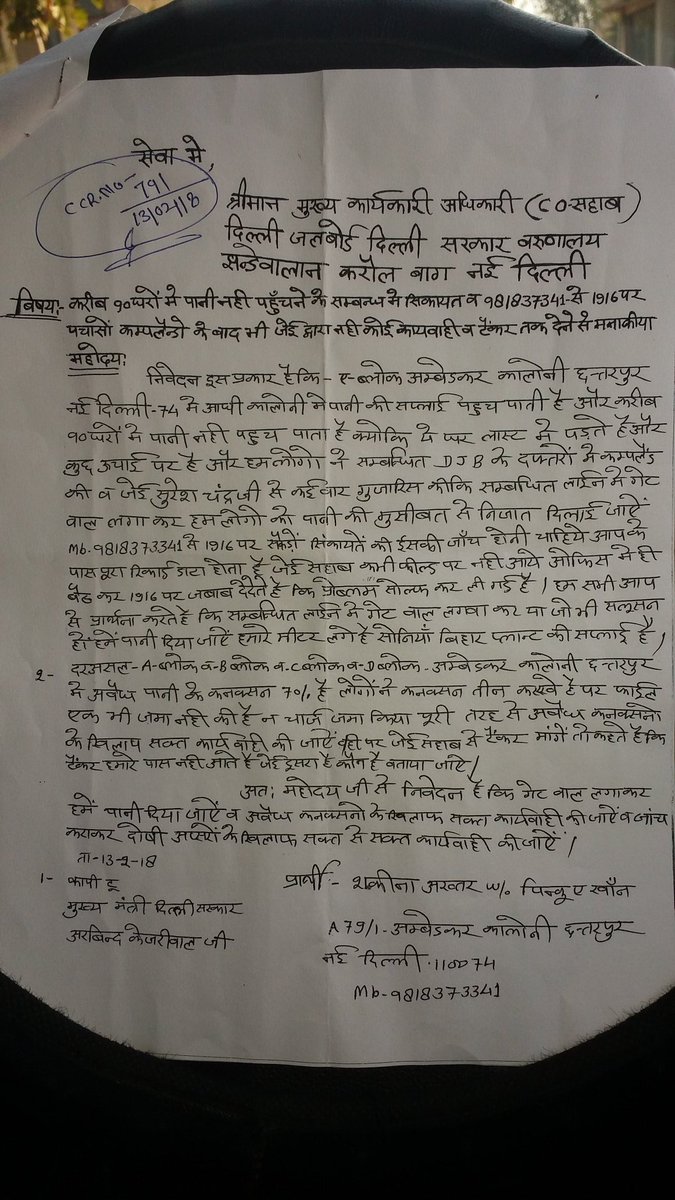 सेवा मे,
CCR.NO-
791
13/02/18
श्रीमान मुख्य कार्यकारी अधिकारी (CO-सहाब)
दिल्ली जलबोर्ड दिल्ली सरकार वरुणालय
झन्डेवालान करौल बाग नई दिल्ली
विषय:- करीब १०घरों मे पानी नही पहुँचने के सम्बन्ध मे सिकायत व 981837341-से 1916 पर
पचासों कम्पलैन्डो के वाद भी जेई द्वारा नही कोई कायवाही व टैंकर तक देने से मनाकीया
महोदय:
निवेदन इस प्रकार है कि- ए-ब्लोक अम्बेडकर कालोनी छत्तरपुर
नई दिल्ली-74 मे आधी कालोनी मे पानी की सप्लाई पहुच पाती है और करीब
१०घरों मे पानी नही पहुच पाता है क्योकि ये घर लास्ट मे पड़ते है और
कुछ उचाई पर है और हम लोगो ने सम्बन्धित DJB के दफ्तरों मे कम्पलैंड
की व जेई सुरेश चंद्र जी से कई वार गुजारिस की कि सम्बन्धित लाईन मे गेट
वाल लगा कर हम लोगो को पानी की मुसीबत से निजात दिलाई जाऐं
Mb-9818373341 से 1916 पर सैकडों सिकायतें की ईसकी जाँच होनी चाहिये आपके
पास पूरा रिकार्ड डाटा होता है जेई सहाब कभी फील्ड पर नही आये ओफिस मे ही
बैठ कर 1916 पर जबाब दे देते है कि प्रोब्लम सोल्फ कर ली गई है / हम सभी आप
से प्रार्थना करते है कि सम्बन्धित लाईन मे गेट वाल लगवा कर या जो भी सलूसन
हो हमें पानी दिया जाऐं हमारे मीटर लगे है सोनियाँ बिहार प्लान्ट की सप्लाई है /
2- दरअसल- A-ब्लोक व-B ब्लोक व-C ब्लोक व-D ब्लोक- अम्बेडकर कालोनी छत्तरपुर
मे अवैध पानी के कनक्सन 70% है लोगों ने कनक्सन तीन करखे है पर फाईल
एक भी जमा नही की है न चार्ज जमा किया पूरी तरह से अवैध कनक्सनो
के खिलाप सक्त कार्यवाही की जाऐं वही पर जेई सहाब से टैंकर मांगे तो कहते है कि
टैंकर हमारे पास नही आते है जेई दूसरा है कौन है बताया जाऐं /
अत: महोदय जी से निवेदन है कि गेट वाल लगाकर
हमें पानी दिया जाऐं व अवैध कनक्सनो के खिलाफ सक्त कार्यवाही की जाऐं व जांच
कराकर दोषी अफ्सरों के खिलाफ सक्त से सक्त कार्यवाही की जाऐं /
ता-13-2-18
1- कापी टू
मुख्य मंत्री दिल्ली सरकार
अरबिन्द केजरीवाल जी
प्रार्थी- शकीना अख्तर w/o पिन्कू ए खाँन
A 79/1- अम्बेडकर कालोनी छत्तरपुर
नई दिल्ली-110074
Mb-9818373341